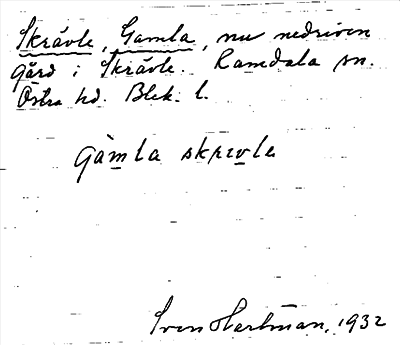 Skrävle, Gamla, nu nedriven
gård i Skrävle. Ramdala sn.
Östra hd. Blek. l.
gàmla skrɛvlɛ
Sven Hartman, 1932